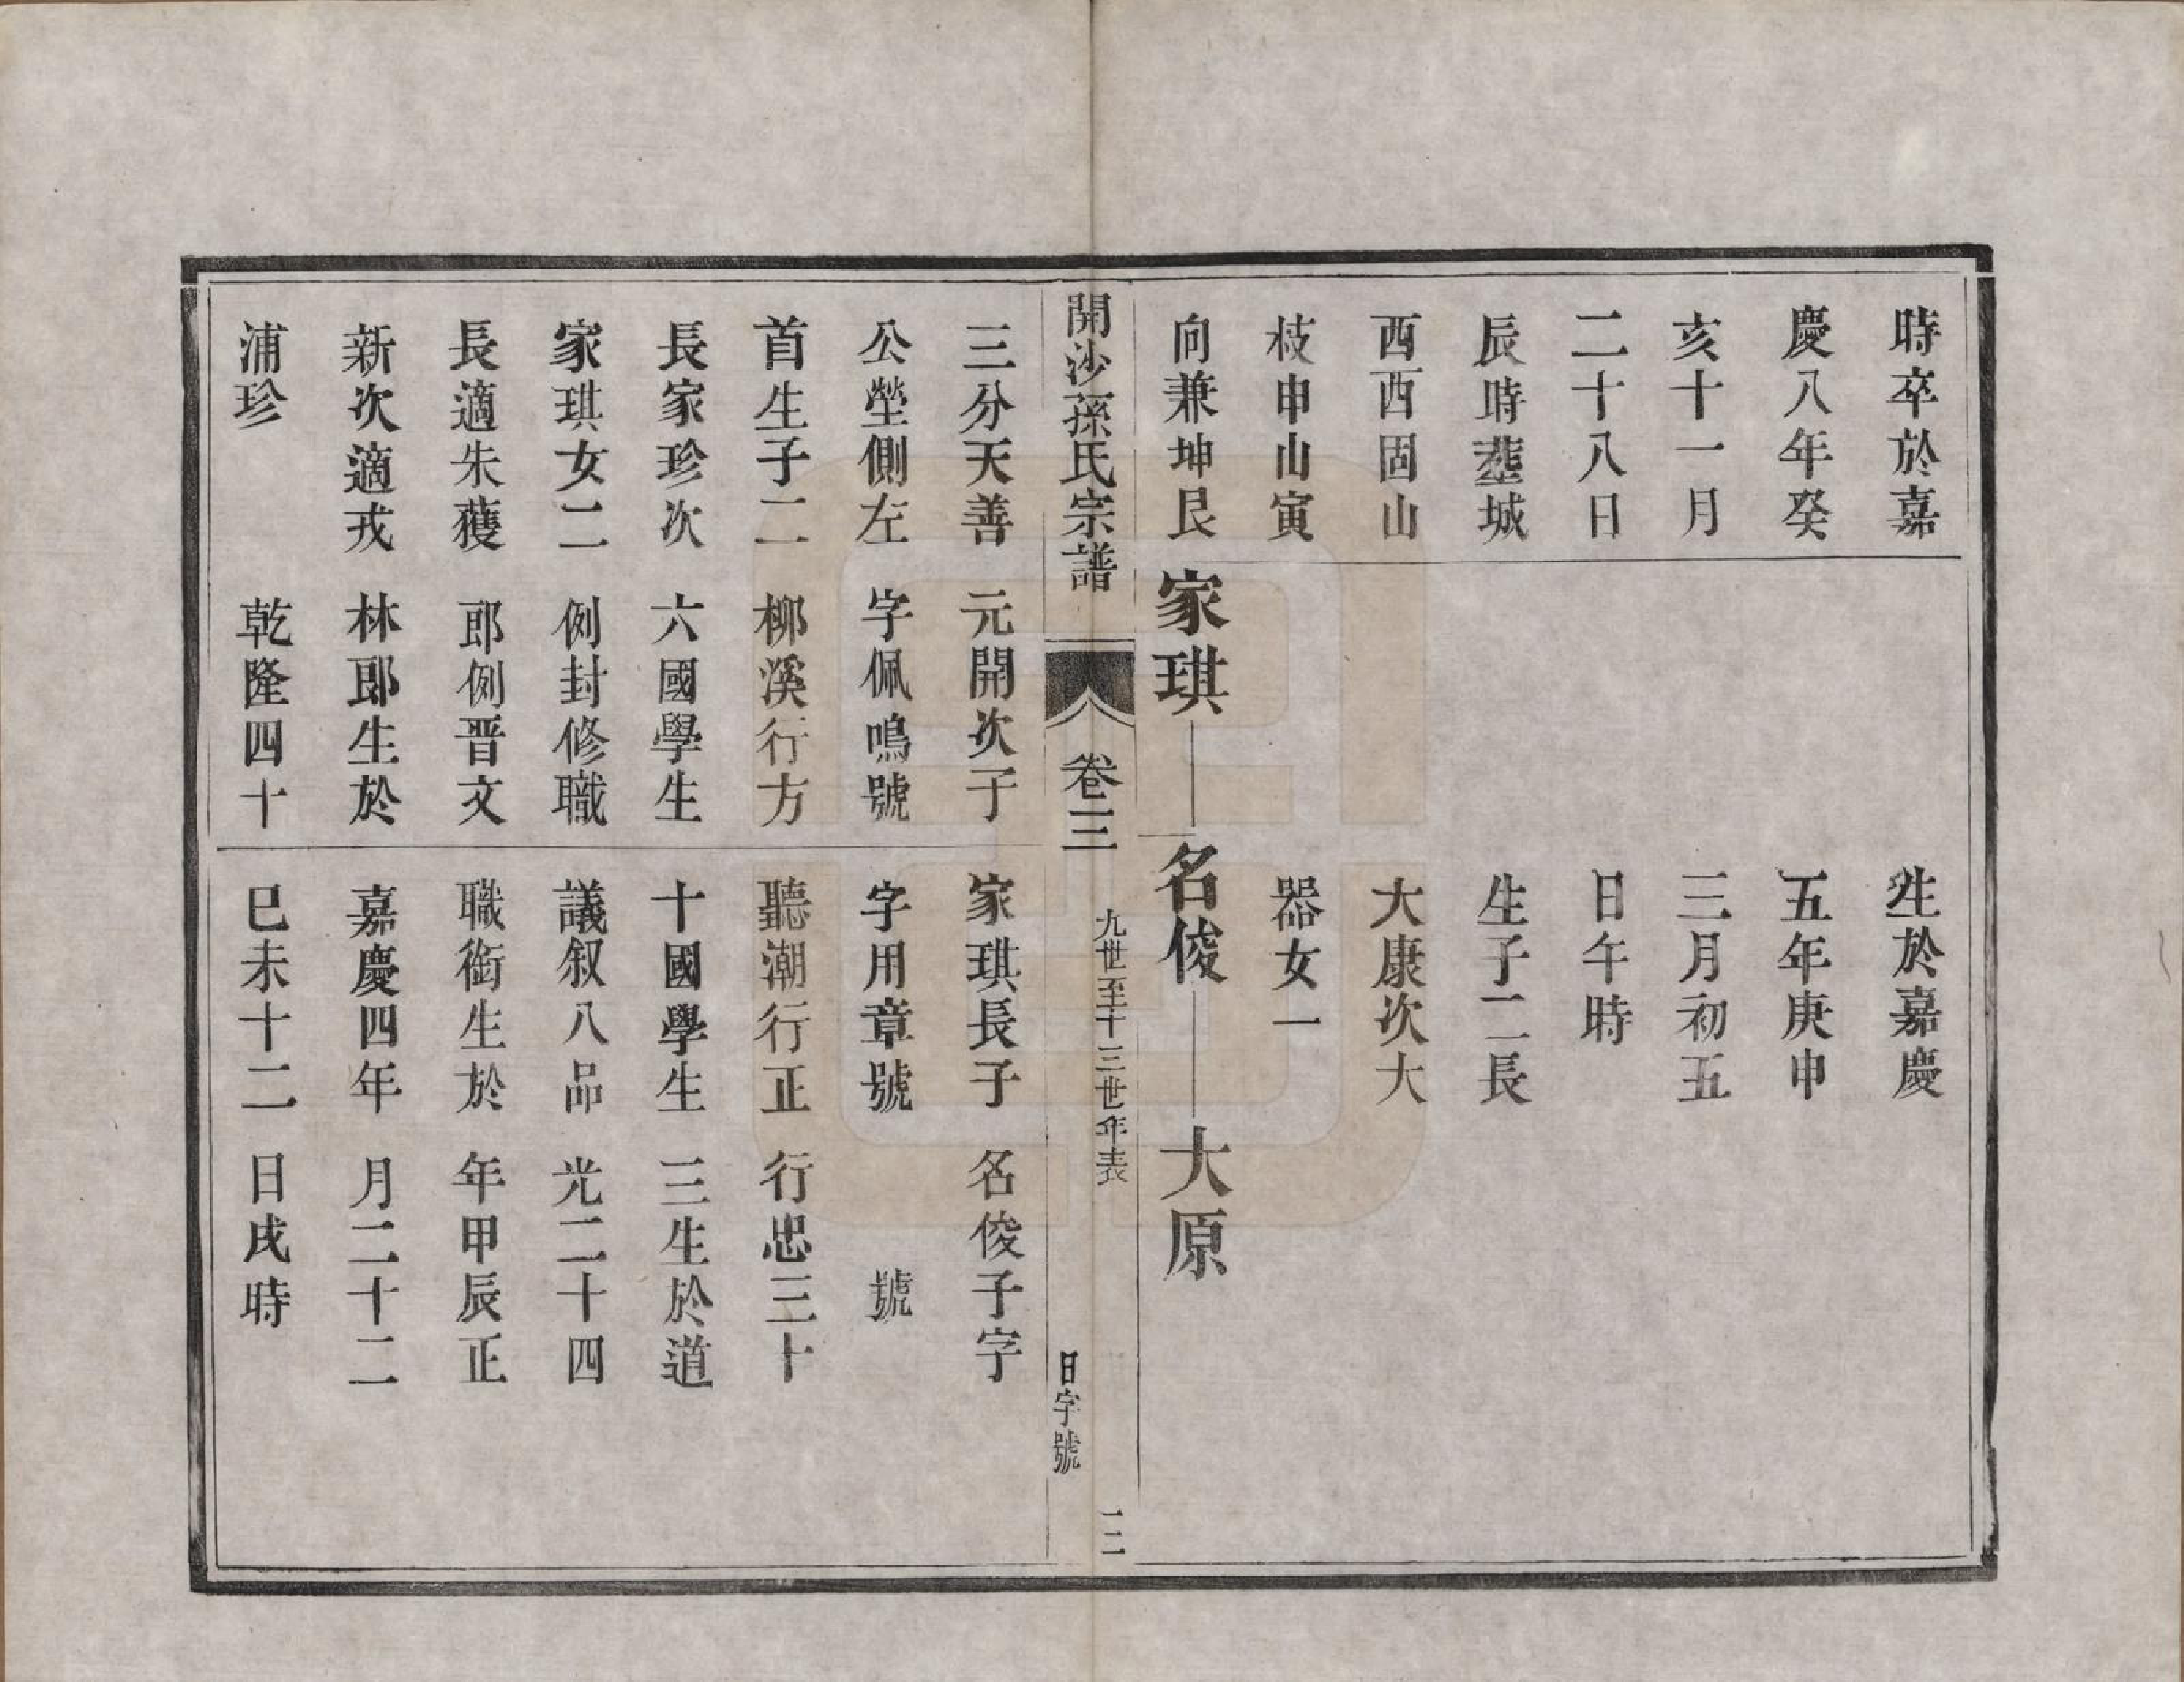 時卒於嘉
慶八年癸
亥十一月
二十八日
辰時塟城
西西固山
枝申山寅
向兼坤艮
生於嘉慶
五年庚申
三月初五
日午時
生子二長
大康次大
器女一
家琪
名俊
大原
開沙孫氏宗譜
卷三
九世至十三世年表
日字號
二
三分天善
公塋側左
首生子二
長家珍次
家琪女二
長適朱蘐
新次適戎
浦珍
元開次子
字佩鳴號
柳溪行方
六國學生
例封修職
郎例晋文
林郎生於
乾隆四十
家琪長子
字用章號
聽潮行正
十國學生
議叙八品
職銜生於
嘉慶四年
巳未十二
名俊子字
號
行忠三十
三生於道
光二十四
年甲辰正
月二十二
日戌時